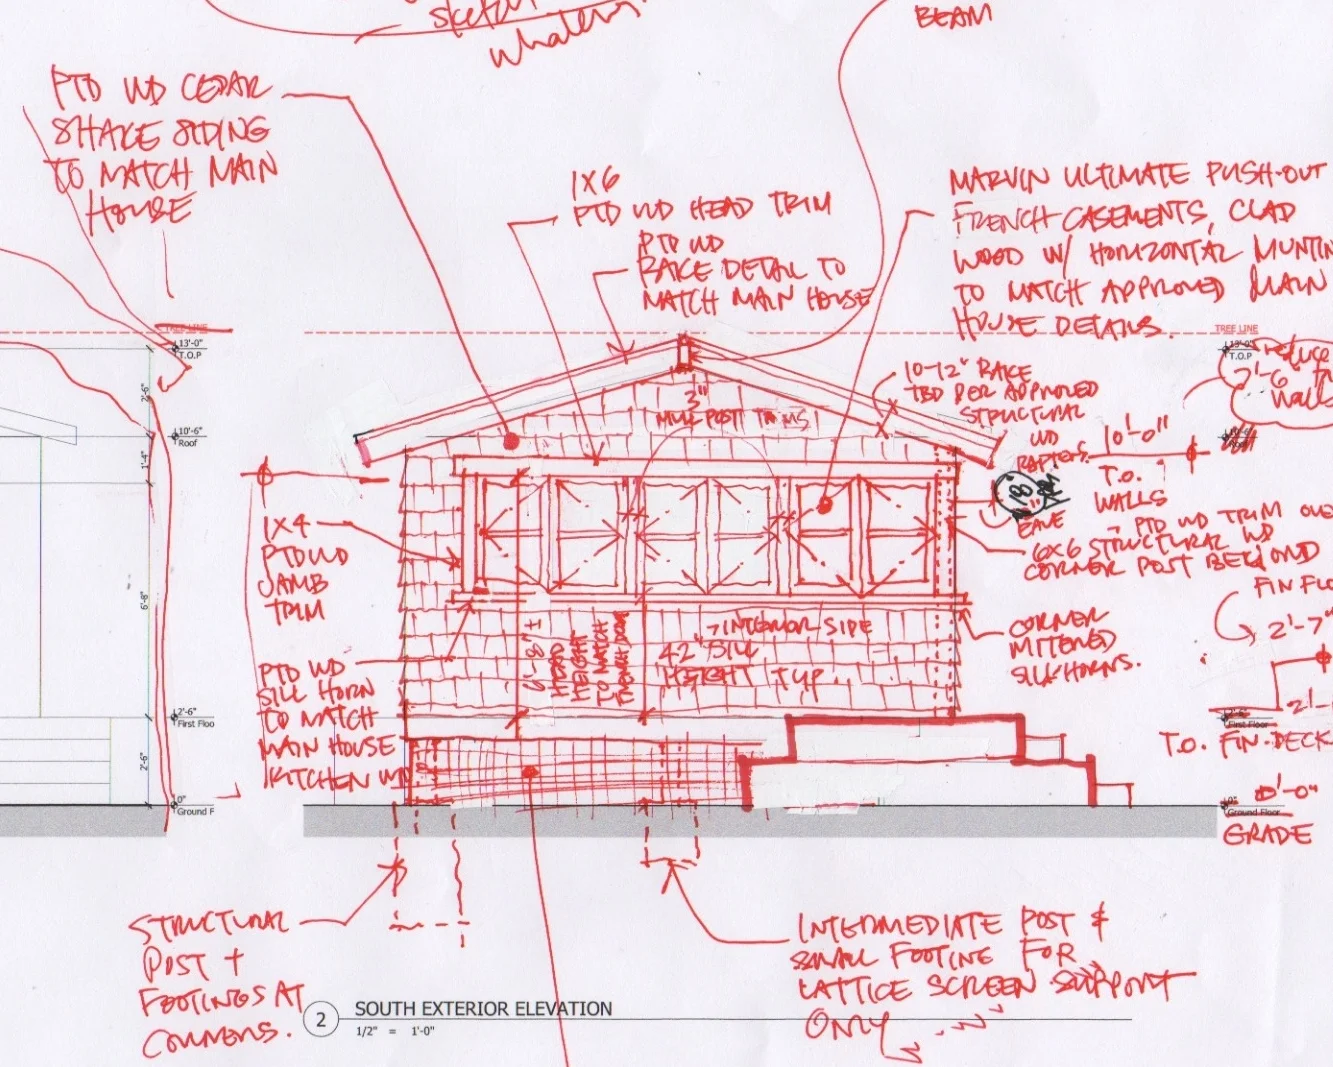 sketch
whatever
BEAM
PTD WD CEDAR
SHAKE SIDING
TO MATCH MAIN
HOUSE
1X6
PTD WD HEAD TRIM
PTD WD
RAKE DETAIL TO
MATCH MAIN HOUSE
MARVIN ULTIMATE PUSH-OUT
FRENCH CASEMENTS, CLAD
WOOD W/ HORIZONTAL MUNTIN
TO MATCH APPROVED MAIN
HOUSE DETAILS.
TREE LINE
13'-0"
T.O.P
2'-6"
10'-6"
Roof
1'-4"
6'-8"
2'-6"
First Floo
2'-6"
0"
Ground F
3"
MULL POST TRIMS
10-12" RAKE
TBD PER APPROVED
STRUCTURAL
WD
RAFTERS.
TREE LINE
13'-0"
T.O.P
reduce
2'-6"
walls
10'-0"
T.O.
WALLS
18"
EAVE
1X4
PTD WD
JAMB
TRIM
PTD WD TRIM OVE
6X6 STRUCTURAL WD
CORNER POST BEYOND
FIN FLO
2'-7"
CORNER
MITERED
SILL HORNS.
PTD WD
SILL HORN
TO MATCH
MAIN HOUSE
KITCHEN WD
6'-8" ±
HEAD
HEIGHT
TO MATCH
FRENCH DOOR
INTERIOR SIDE
42" SILL
HEIGHT TYP.
First Floor
T.O. FIN. DECK
0"
0'-0"
Ground Floor
GRADE
STRUCTURAL
POST +
FOOTINGS AT
CORNERS.
INTERMEDIATE POST &
SMALL FOOTING FOR
LATTICE SCREEN SUPPORT
ONLY
2
SOUTH EXTERIOR ELEVATION
1/2" = 1'-0"